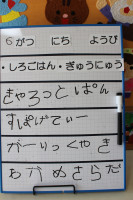 6がつ　にち　ようび
・しろごはん・ぎゅうにゅう
きゃろっとぱん
すぱげてぃー
がーりっくやき
わかめさらだ